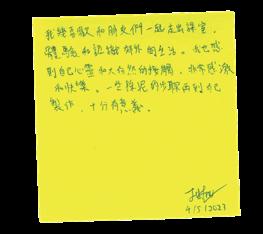 我終喜歡和朋友們一起走出課室，
體驗和認識郊外的生活。我也感
到自己心靈和大自然的接觸，非常感激
和快樂。一些採泥的步驟再到自己
製作，十分有意義。
4/5/2023